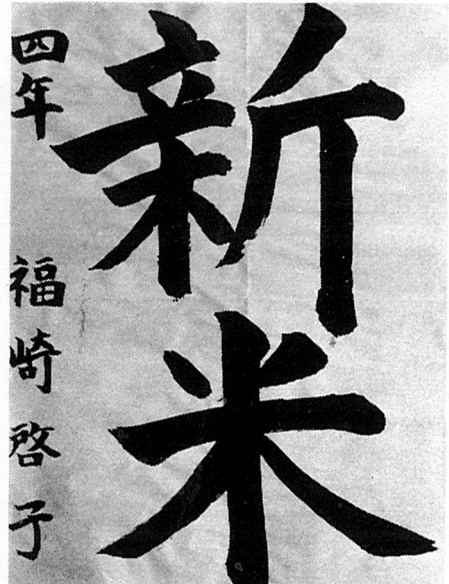 新米
四年 福崎啓子